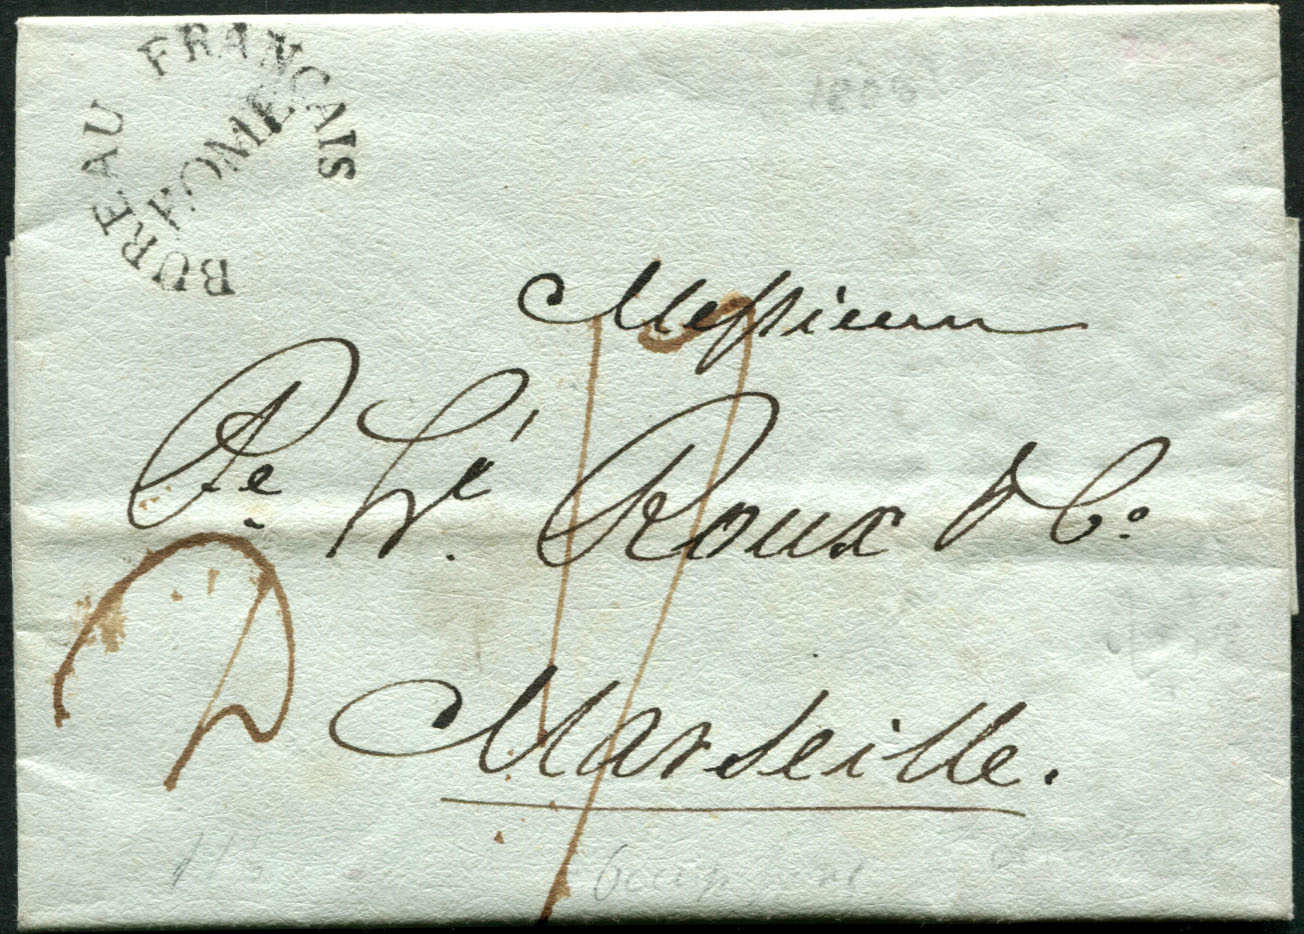 BUREAU FRANCAIS
A ROME
1808
Messieurs
Pe. Hi. Roux & Co.
Marseille.
2
17